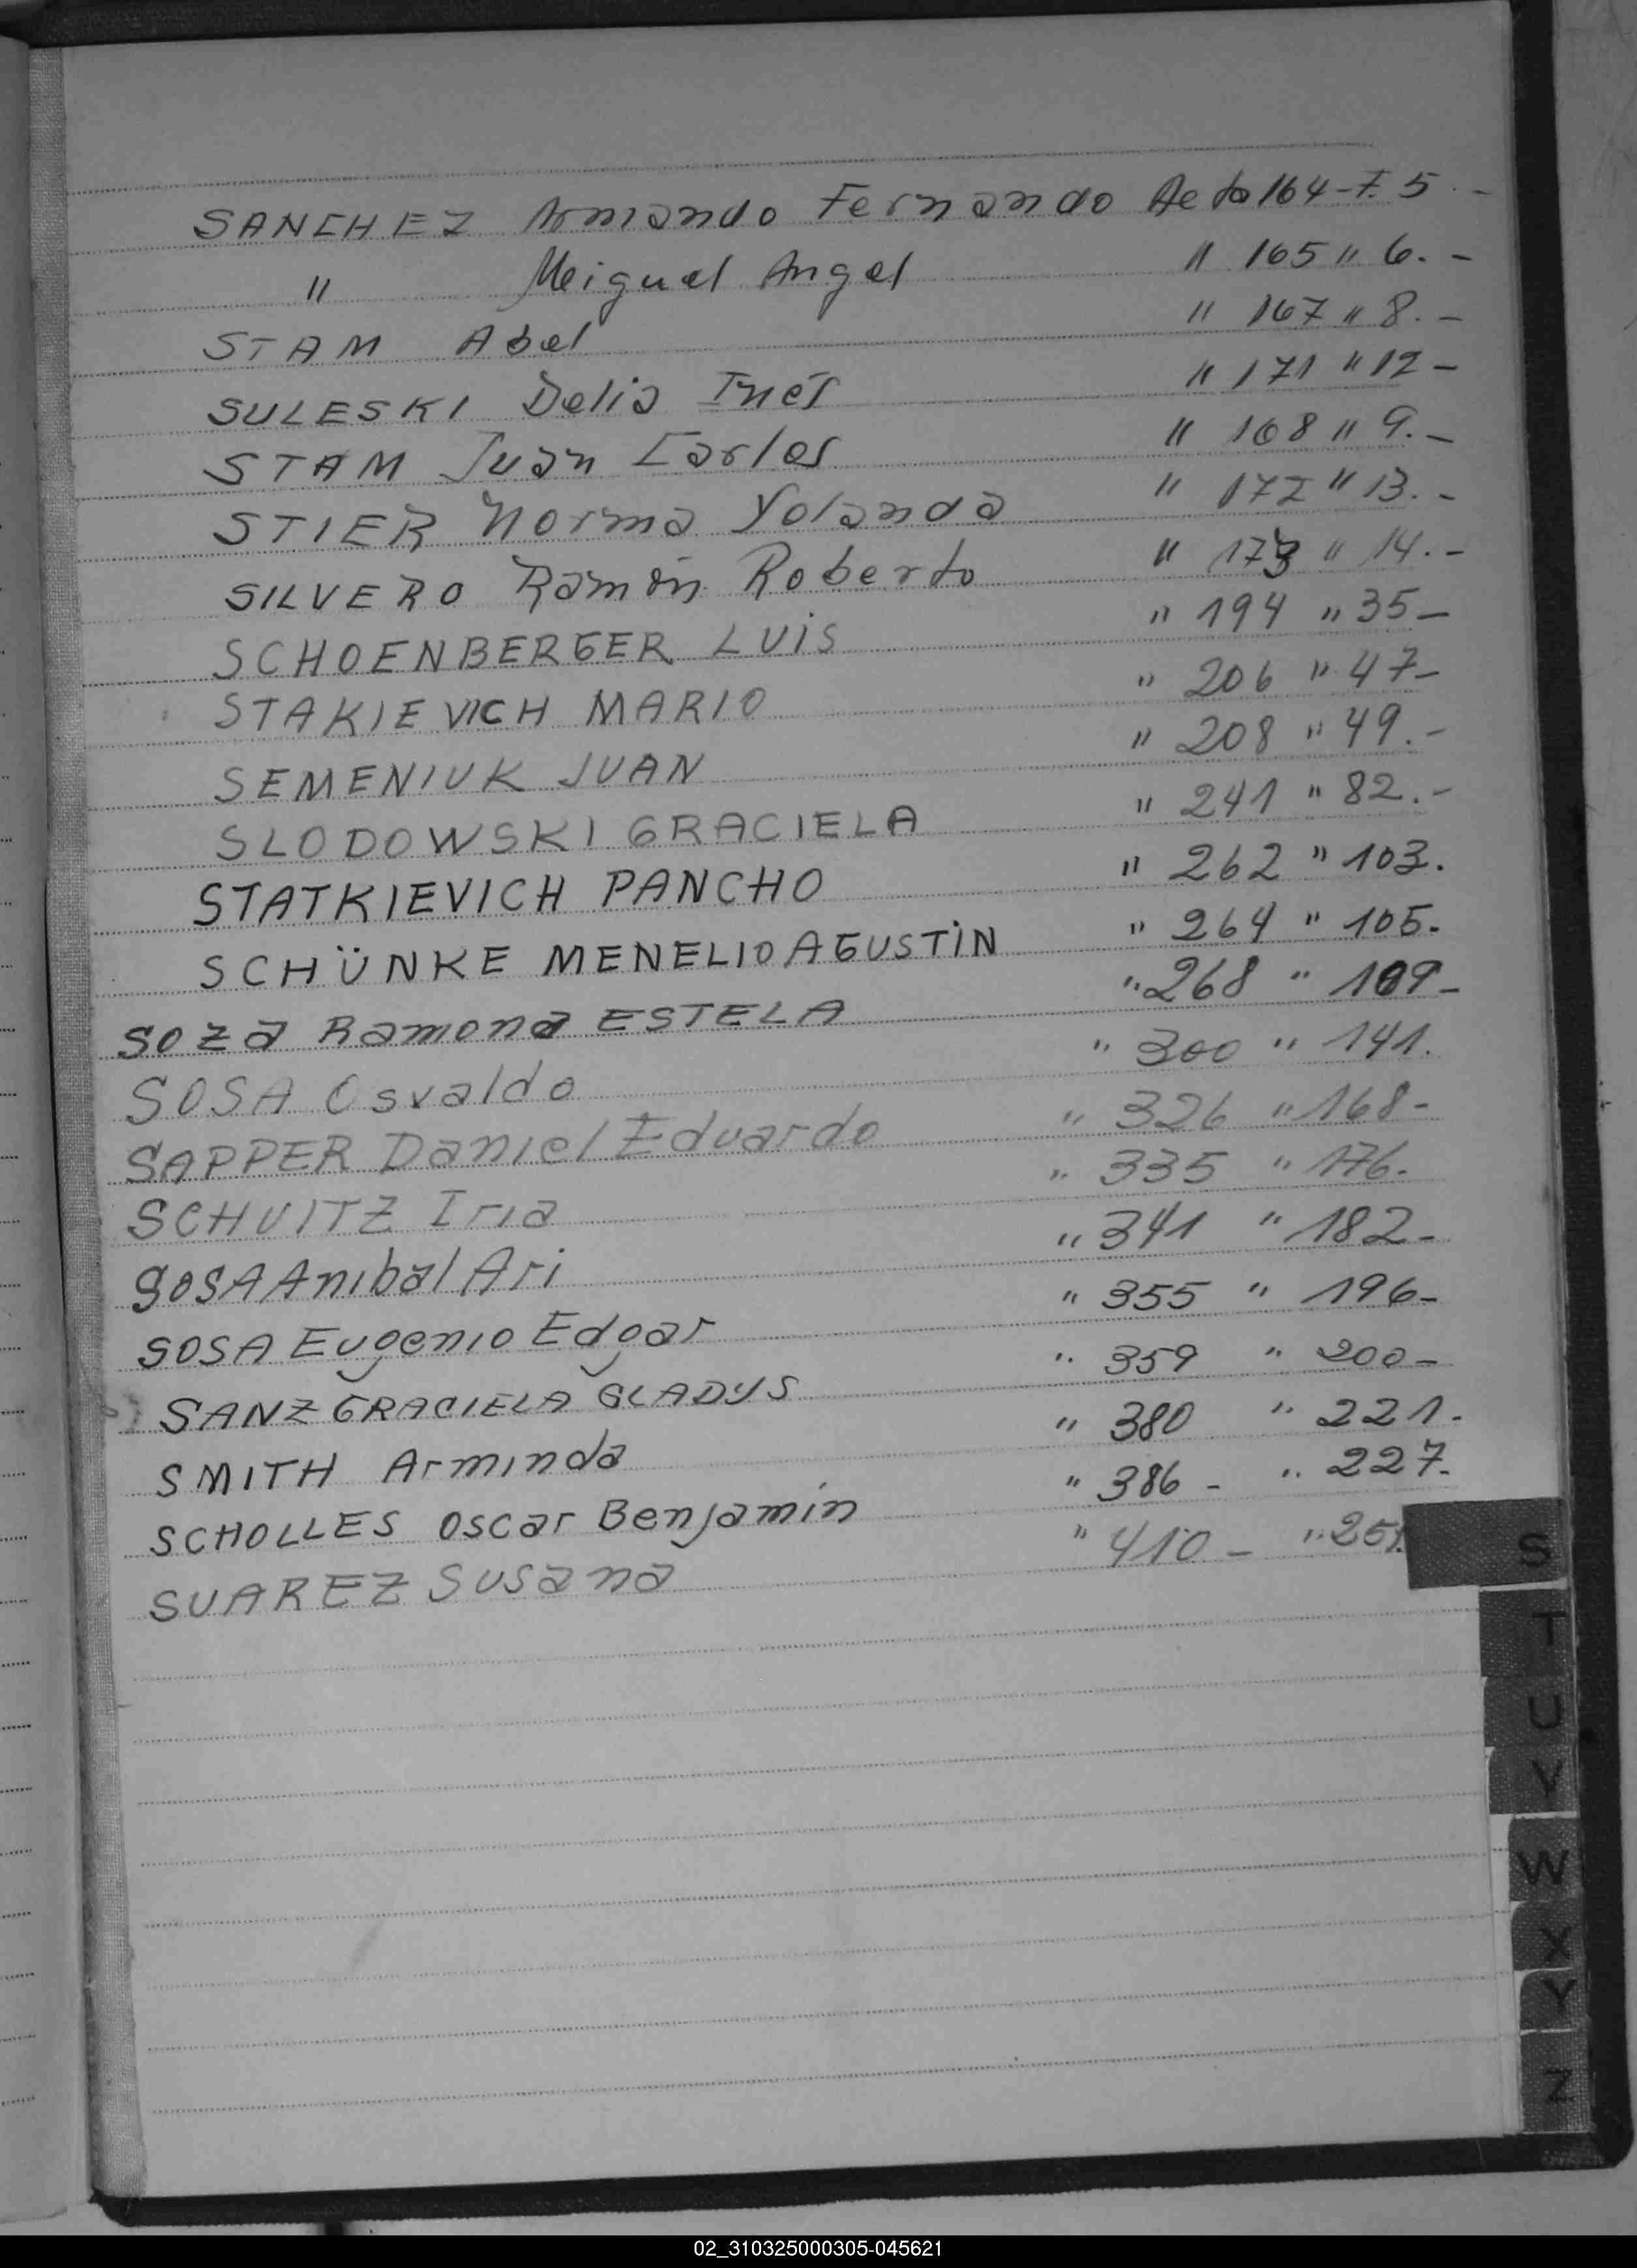 SANCHEZ Armando Fernando Acta 164-F. 5 -
" Meiguel Angel " 165 " 6. -
STAM Abel " 167 " 8. -
SULESKI Delia Inés " 171 " 12 -
STAM Juan Carlos " 168 " 9. -
STIER Norma Yolanda " 172 " 13. -
SILVERO Ramón Roberto " 173 " 14. -
SCHOENBERGER LUIS " 194 " 35 -
STAKIEVICH MARIO " 206 " 47 -
SEMENIUK JUAN " 208 " 49. -
SLODOWSKI GRACIELA " 241 " 82. -
STATKIEVICH PANCHO " 262 " 103.
SCHÜNKE MENELIO AGUSTIN " 264 " 105.
SOZA Ramona ESTELA " 268 " 109 -
SOSA Osvaldo " 300 " 141.
SAPPER Daniel Eduardo " 326 " 168 -
SCHUITZ Iria " 335 " 176.
SOSA Anibal Ari " 341 " 182 -
SOSA Eugenio Edgar " 355 " 196 -
SANZ GRACIELA GLADYS " 359 " 200 -
SMITH Arminda " 380 " 221.
SCHOLLES Oscar Benjamin " 386 - " 227.
SUAREZ Susana " 410 - " 251.
S
T
U
V
W
X
Y
Z
02_310325000305-045621